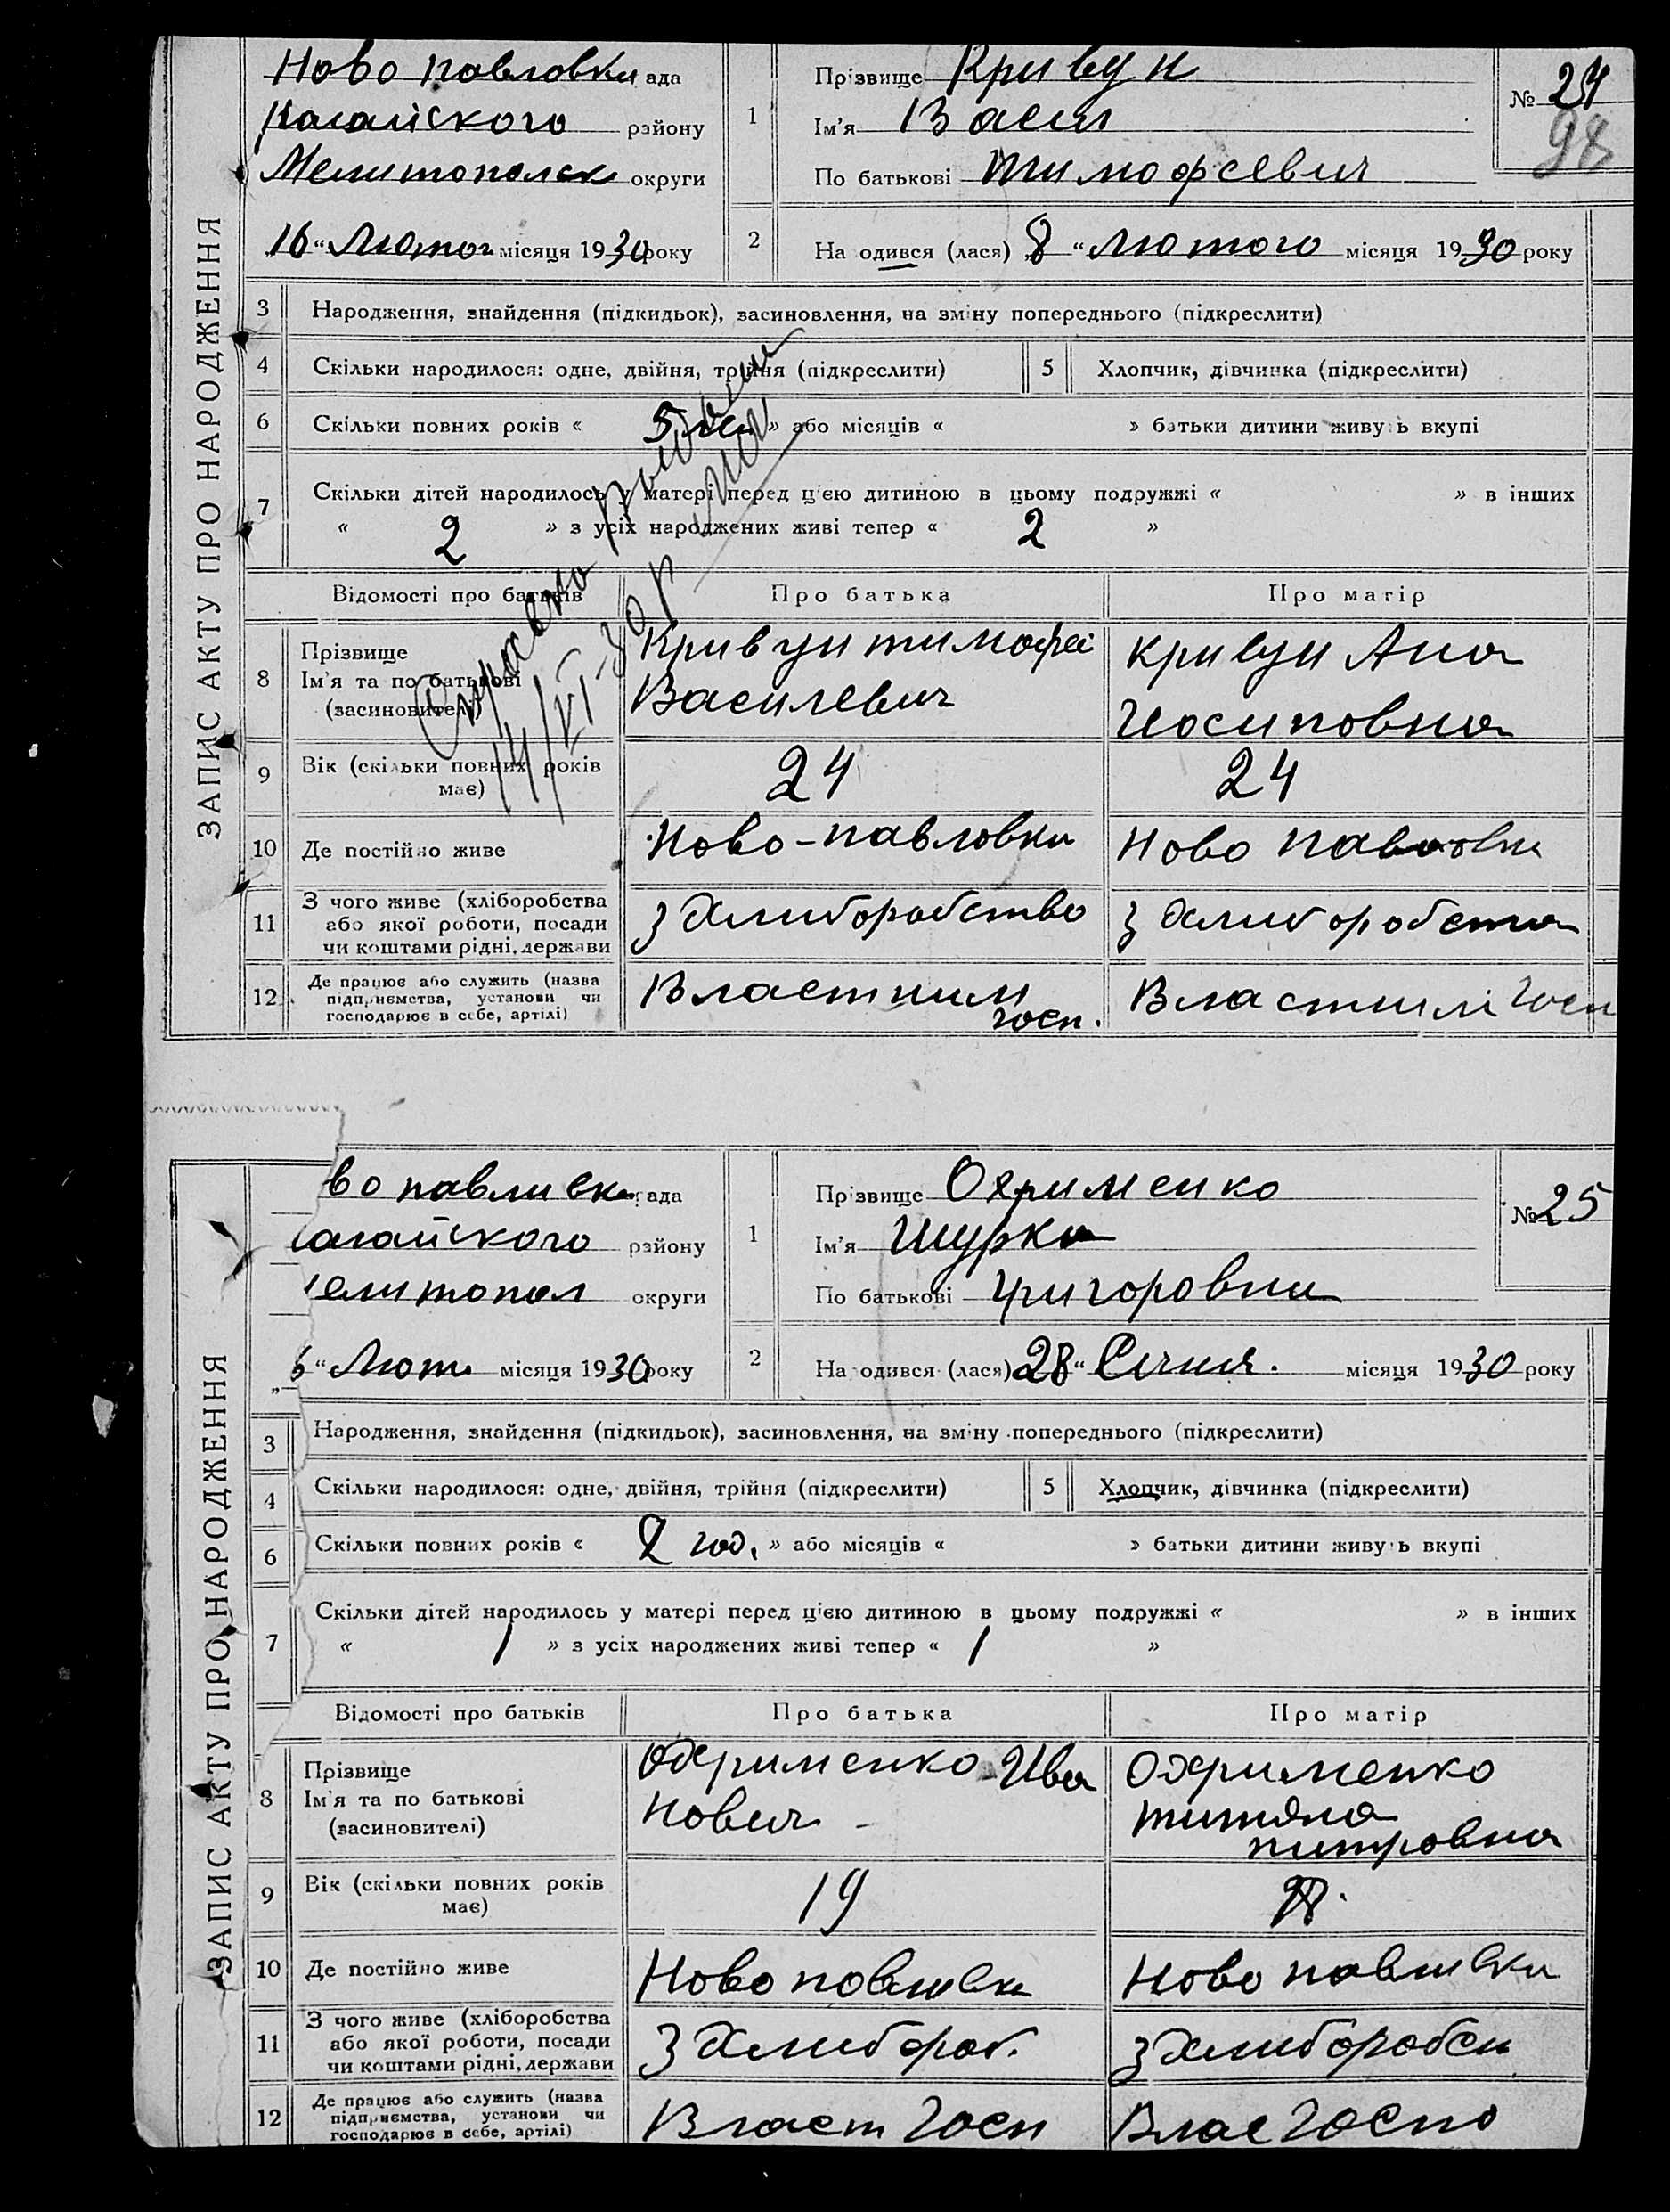 ЗАПИС АКТУ ПРО НАРОДЖЕННЯ
Ново павловки ада
Нагайского району
Мелитопольск округи
„16“ Лютог місяця 1930 року
1
Прізвище Кривун
Ім'я Васил
По батькові тимофеевич
№ 24
98
2
На одився (лася) „8“ лютого місяця 1930 року
3 Народження, знайдення (підкидьок), засиновлення, на зміну попереднього (підкреслити)
4 Скільки народилося: одне, двійня, трійня (підкреслити) 5 Хлопчик, дівчинка (підкреслити)
6 Скільки повних років « 5 лет » або місяців « » батьки дитини живуть вкупі
7 Скільки дітей народилось у матері перед цією дитиною в цьому подружжі « » в інших
« 2 » з усіх народжених живі тепер « 2 »
Справка
14/VI-30 р
Відомості про батьків Про батька Про матір
8 Прізвище Ім'я та по батькові (засиновителі)
Кривун тимофеі Василевич
кривун Ана Иосиповна
9 Вік (скільки повних років має) 24 24
10 Де постійно живе Ново-павловки Ново павловки
11 З чого живе (хліборобства або якої роботи, посади чи коштами рідні, держави
З Хлиборобство
З Хлиборобства
12 Де працює або служить (назва підприємства, установи чи господарює в себе, артілі)
Властним госп.
Властнимі госп
ЗАПИС АКТУ ПРО НАРОДЖЕННЯ
во павливка ада
агайского району
елитопол округи
6“ Люти місяця 1930 року
1
Прізвище Охрименко
Ім'я Шурка
По батькові григоровна
№ 25
2
На одився (лася) 28“ Січня. місяця 1930 року
3 Народження, знайдення (підкидьок), засиновлення, на зміну попереднього (підкреслити)
4 Скільки народилося: одне, двійня, трійня (підкреслити) 5 Хлопчик, дівчинка (підкреслити)
6 Скільки повних років « 2 год. » або місяців « » батьки дитини живуть вкупі
7 Скільки дітей народилось у матері перед цією дитиною в цьому подружжі « » в інших
« 1 » з усіх народжених живі тепер « 1 »
Відомості про батьків Про батька Про матір
8 Прізвище Ім'я та по батькові (засиновителі)
Охрименко Ива нович
Охрименко титяна питровна
9 Вік (скільки повних років має) 19
10 Де постійно живе Ново павливки Ново павливки
11 З чого живе (хліборобства або якої роботи, посади чи коштами рідні, держави
З Хлибороб.
З Хлиборобси
12 Де працює або служить (назва підприємства, установи чи господарює в себе, артілі)
Власт госп
Влас госпо